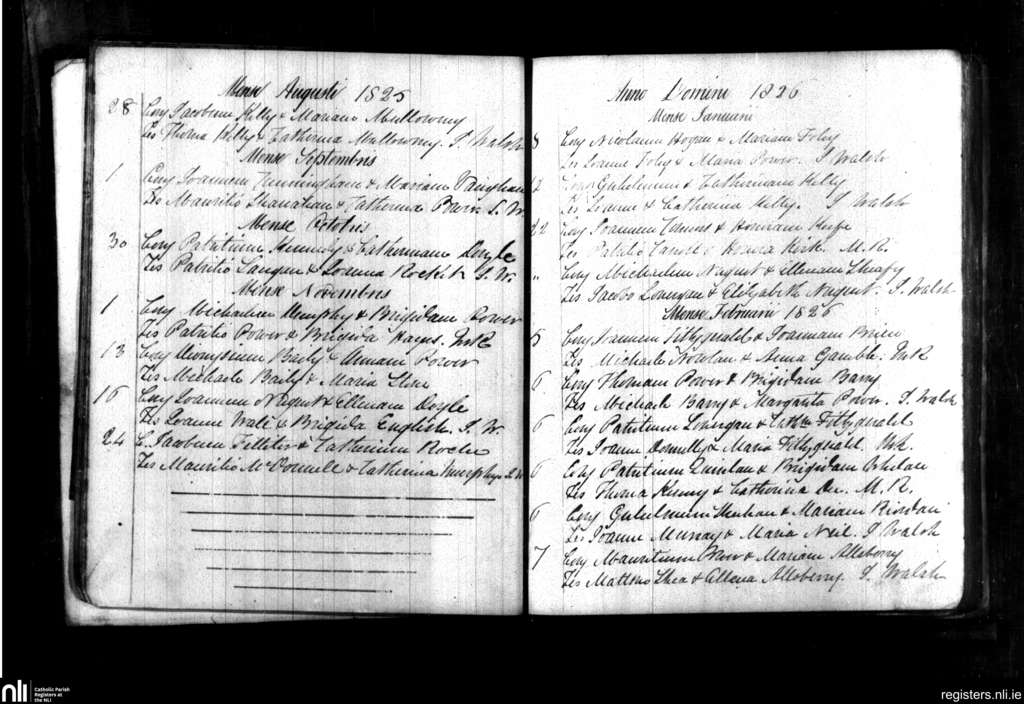 Mense Augusti 1825
28 Conj Jacobum Kelly & Mariam Mullowny
Tes Thoma Kelly & Catherina Mullowney. J Walsh
Mense Septembris
1 Conj Joannem Cunningham & Mariam Vaughan
Tes Mauritio Shanahan & Catherina Power J. W.
Mense Octobris
30 Conj Patritium Kennedy & Catherinam Doyle
Tes Patritio & Joanna Rockett J. W.
Mense Novembris
1 Conj Michaelem Murphy & Brigidam Power
Tes Patritio Power & Brigida Hayes. MR
13 Conj Baily & Power
Tes Michaele Baily & Maria
16 Conj Joannem Nugent & Ellenam Doyle
Tes Joanne Wall & Brigida English. J. W.
24 C. Jacobum & Catherinam Roche
Tes Mauritio McDonnell & Catherina Murphy J W
Anno Domini 1826
Mense Januarii
8 Conj Nicolaum Hogan & Mariam Foley
Tes Joanne Foley & Maria Power. J Walsh
Conj Gulielmum & Catherinam Kelly
Tes Joanne & Catherina Kelly. J Walsh
22 Conj Joannem & Honoram
Tes Patritio & Honora. M. R.
" Conj Michaelem Nugent & Ellenam Sheafy
Tes Jacobo Lonergan & Elizabeth Nugent. J. Walsh
Mense Februarii 1826
5 Conj Joannem Fitzgerald & Joannam Brien
Tes Michaele Nowlan & Anna Gamble. MR
6 Conj Thomam Power & Brigidam Barry
Tes Michaele Barry & Margarita Power. J. Walsh
6 Conj Patritium Lonergan & Fitzgerald
Tes Joanne Donnelly & Maria Fitzgerald MR.
6 Conj Patritium Quinlan & Brigidam Whelan
Tes Thoma Kenny & Catherina M. R.
6 Conj Gulielmum Meehan & Mariam Riordan
Tes Joanne Murray & Maria Neil. J Walsh
7 Conj Mauritium & Mariam Alleberry
Tes Shea & Ellena Alleberry. J. Walsh
nli
Catholic Parish
Registers at
the NLI
registers.nli.ie